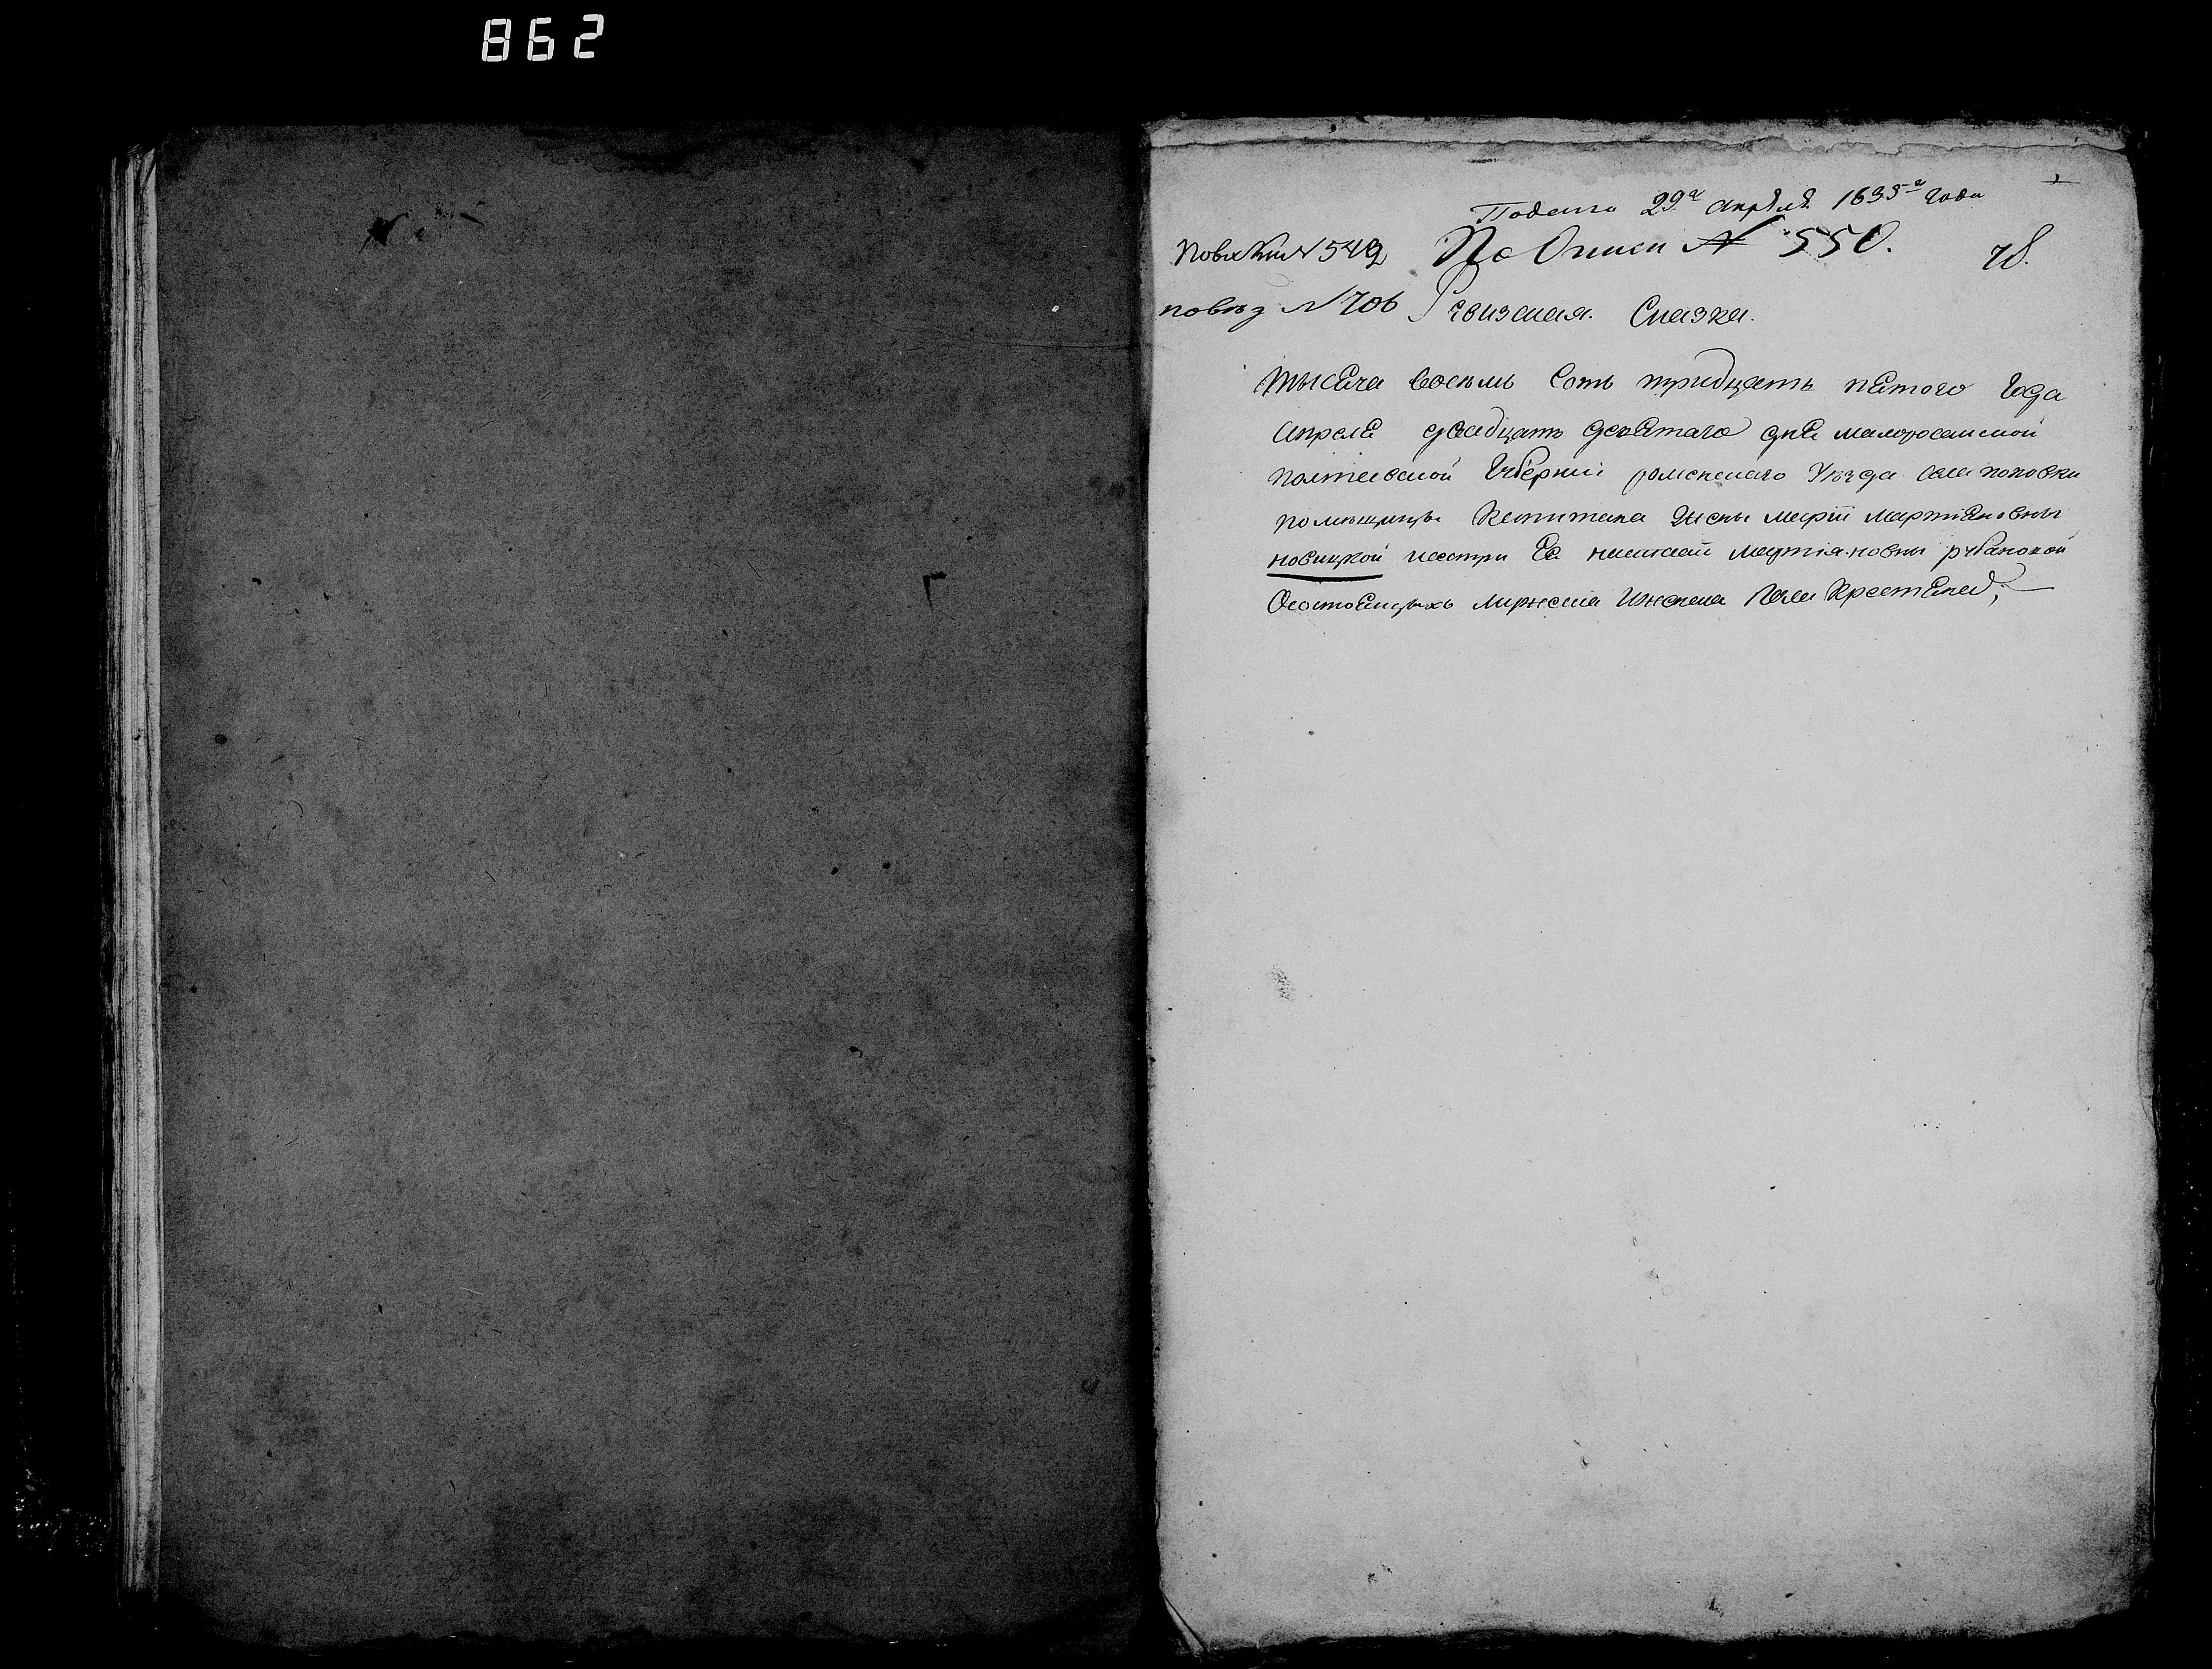 862
Подана 29го апреля 1835го года
По Описи № 550. 78.
№ 549
№ 706 Ревизская Сказка.
Тысяча восемь Сотъ тридцать пятого Года
апреля двадцать девятаго дня малоросийской
полтавской Губерніи роменскаго Уезда села поповки
помещицы Капитана жены маріи мартияновны
новицкой исестри Ея мартіяновны рубановой
Осостоящихъ мужеска Иженска пола Крестянъ,